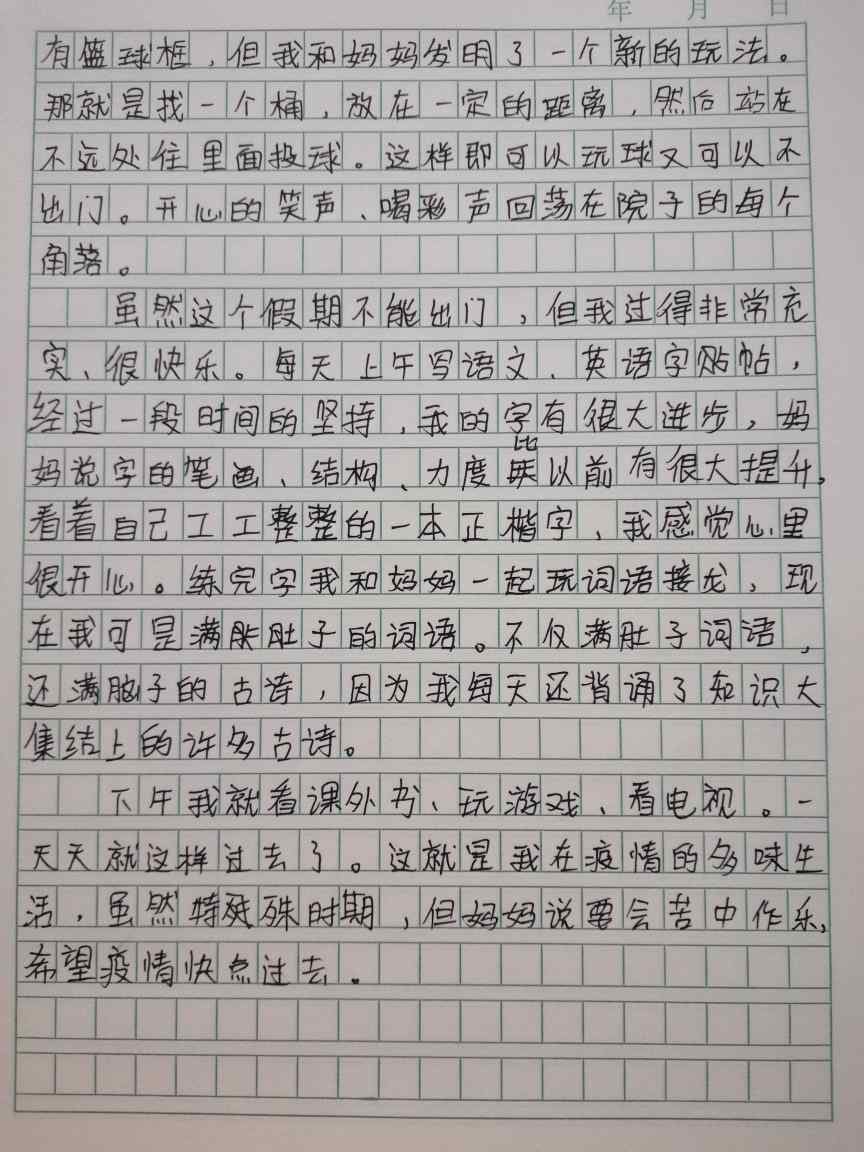 年 月 日
有篮球框，但我和妈妈发明了一个新的玩法。
那就是找一个桶，放在一定的距离，然后站在
不远处往里面投球。这样即可以玩球又可以不
出门。开心的笑声、喝彩声回荡在院子的每个
角落。
虽然这个假期不能出门，但我过得非常充
实、很快乐。每天上午写语文、英语字贴帖，
经过一段时间的坚持，我的字有很大进步，妈
妈说字的笔画、结构、力度比以前有很大提升，
看着自己工工整整的一本正楷字，我感觉心里
很开心。练完字我和妈妈一起玩词语接龙，现
在我可是满肚子的词语。不仅满肚子词语，
还满脑子的古诗，因为我每天还背诵了知识大
集结上的许多古诗。
下午我就看课外书、玩游戏、看电视。一
天天就这样过去了。这就是我在疫情的多味生
活，虽然特殊时期，但妈妈说要会苦中作乐，
希望疫情快点过去。